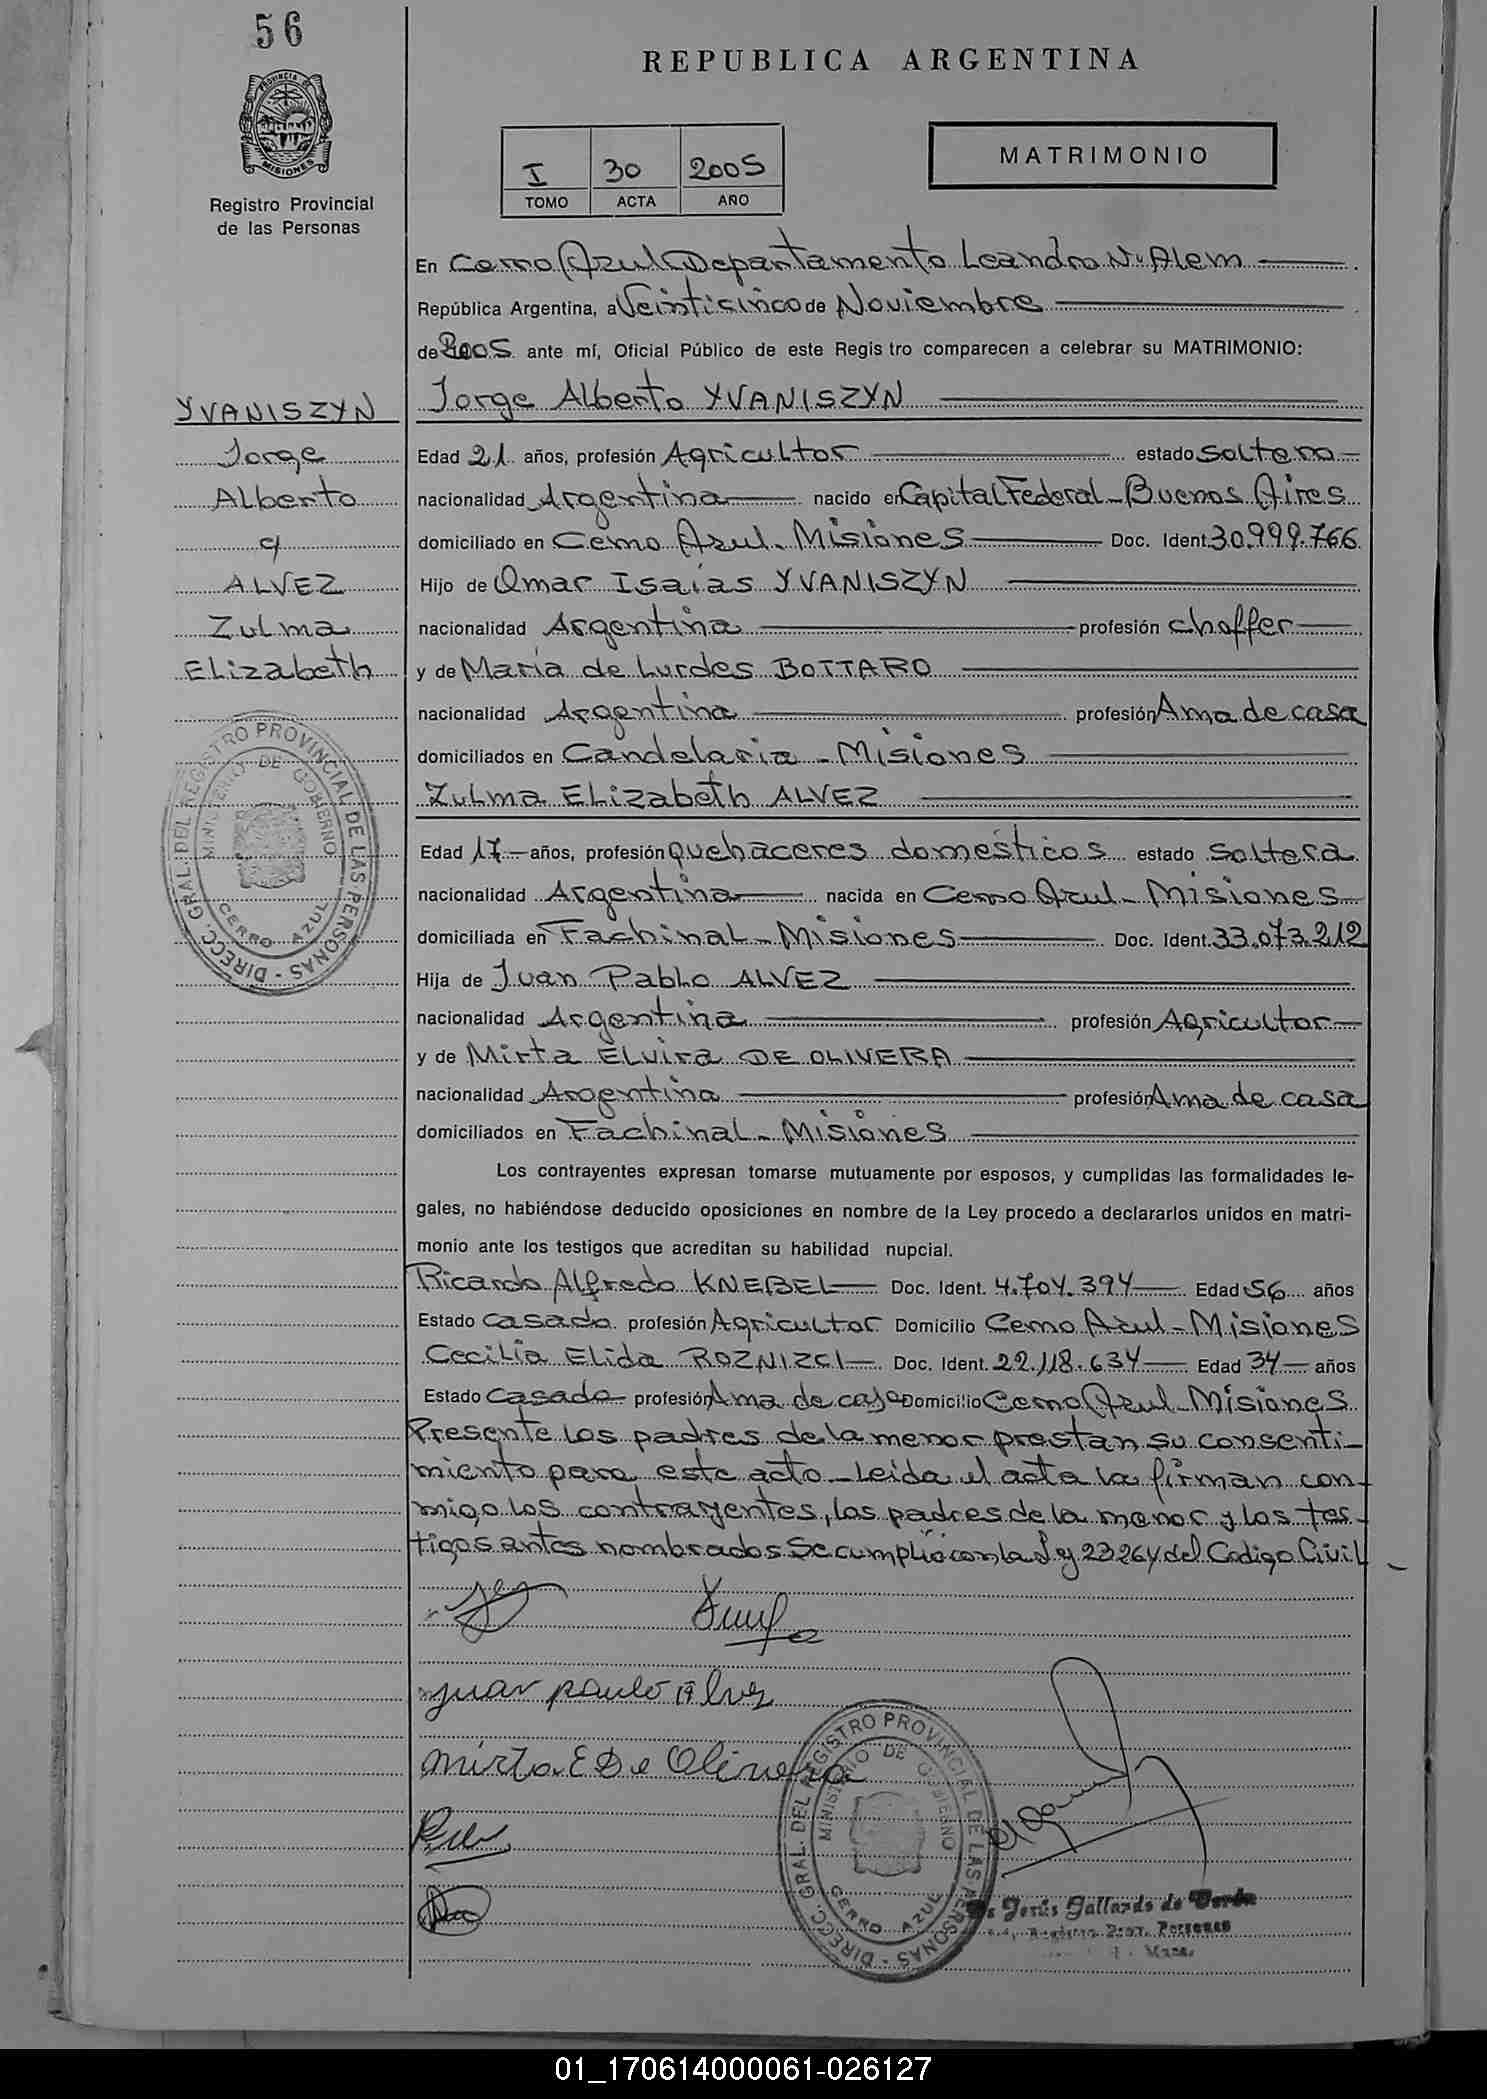 56
REPUBLICA ARGENTINA
PROVINCIA DE
MISIONES
Registro Provincial
de las Personas
I 30 2005
TOMO ACTA AÑO
MATRIMONIO
En Cerro Azul Departamento Leandro N. Alem
República Argentina, a Veinticinco de Noviembre
de 2005 ante mí, Oficial Público de este Registro comparecen a celebrar su MATRIMONIO:
YVANISZYN
Jorge
Alberto
c/
ALVEZ
Zulma
Elizabeth
Jorge Alberto YVANISZYN
Edad 21 años, profesión Agricultor estado soltero
nacionalidad Argentina nacido en Capital Federal - Buenos Aires
domiciliado en Cerro Azul - Misiones Doc. Ident. 30.999.766
Hijo de Omar Isaías YVANISZYN
nacionalidad Argentina profesión choffer
y de María de Lurdes BOTTARO
nacionalidad Argentina profesión Ama de casa
domiciliados en Candelaria - Misiones
Zulma Elizabeth ALVEZ
Edad 17 años, profesión quehaceres domésticos estado soltera
nacionalidad Argentina nacida en Cerro Azul - Misiones
domiciliada en Fachinal - Misiones Doc. Ident. 33.073.212
Hija de Juan Pablo ALVEZ
nacionalidad Argentina profesión Agricultor
y de Mirta Elvira DE OLIVERA
nacionalidad Argentina profesión Ama de casa
domiciliados en Fachinal - Misiones
Los contrayentes expresan tomarse mutuamente por esposos, y cumplidas las formalidades le-
gales, no habiéndose deducido oposiciones en nombre de la Ley procedo a declararlos unidos en matri-
monio ante los testigos que acreditan su habilidad nupcial.
Ricardo Alfredo KNEBEL Doc. Ident. 4.704.394 Edad 56 años
Estado casado profesión Agricultor Domicilio Cerro Azul - Misiones
Cecilia Elida ROZNIZCI Doc. Ident. 22.118.634 Edad 34 años
Estado casado profesión Ama de casa Domicilio Cerro Azul - Misiones
Presente los padres de la menor prestan su consenti-
miento para este acto - Leida el acta la firman con-
migo los contrayentes, los padres de la menor y los tes-
tigos antes nombrados. Se cumplió con la Ley 23264 del Codigo Civil
DIRECC. GRAL. DEL REGISTRO PROVINCIAL DE LAS PERSONAS
MINISTERIO DE GOBIERNO
CERRO AZUL
juan paulo Alvez
Mirta E De Olivera
DIRECC. GRAL. DEL REGISTRO PROVINCIAL DE LAS PERSONAS
MINISTERIO DE GOBIERNO
CERRO AZUL
Jesús Gallardo de
Registro Prov. Personas
01_170614000061-026127